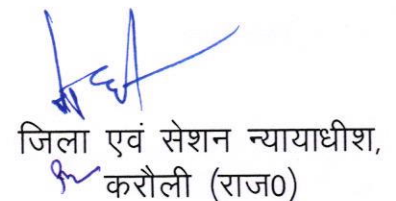 जिला एवं सेशन न्यायाधीश,
करौली (राज0)